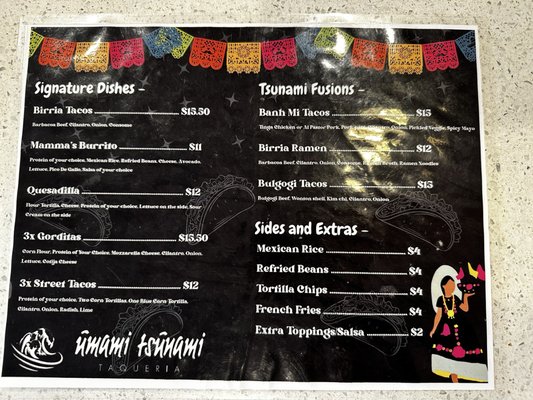 Signature Dishes -
Birria Tacos $15.50
Barbacoa Beef, Cilantro, Onion, Consome
Mamma's Burrito $11
Protein of your choice, Mexican Rice, Refried Beans, Cheese, Avocado,
Lettuce, Pico De Gallo, Salsa of your choice
Quesadilla $12
Flour Tortilla, Cheese, Protein of your choice, Lettuce on the side, Sour
Cream on the side
3x Gorditas $15.50
Corn Flour, Protein of Your Choice, Mozzarella Cheese, Cilantro, Onion,
Lettuce, Cotija Cheese
3x Street Tacos $12
Protein of your choice, Two Corn Tortillas, One Blue Corn Tortilla,
Cilantro, Onion, Radish, Lime
ūmami tsūnami
TAQUERIA
Tsunami Fusions -
Banh Mi Tacos $15
Tinga Chicken or Al Pastor Pork, Cilantro, Onion, Pickled Veggie, Spicy Mayo
Birria Ramen $12
Barbacoa Beef, Cilantro, Onion, Consome, Broth, Ramen Noodles
Bulgogi Tacos $15
Bulgogi Beef, Wonton shell, Kim chi, Cilantro, Onion
Sides and Extras -
Mexican Rice $4
Refried Beans $4
Tortilla Chips $4
French Fries $4
Extra Toppings/Salsa $2